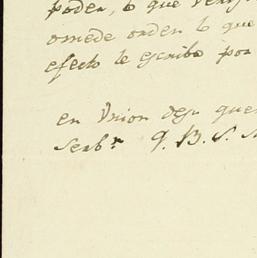 poder, lo que
omede orden lo que
efecto le escribo por
en Vnion desu que
Serbr. Q. B. S.